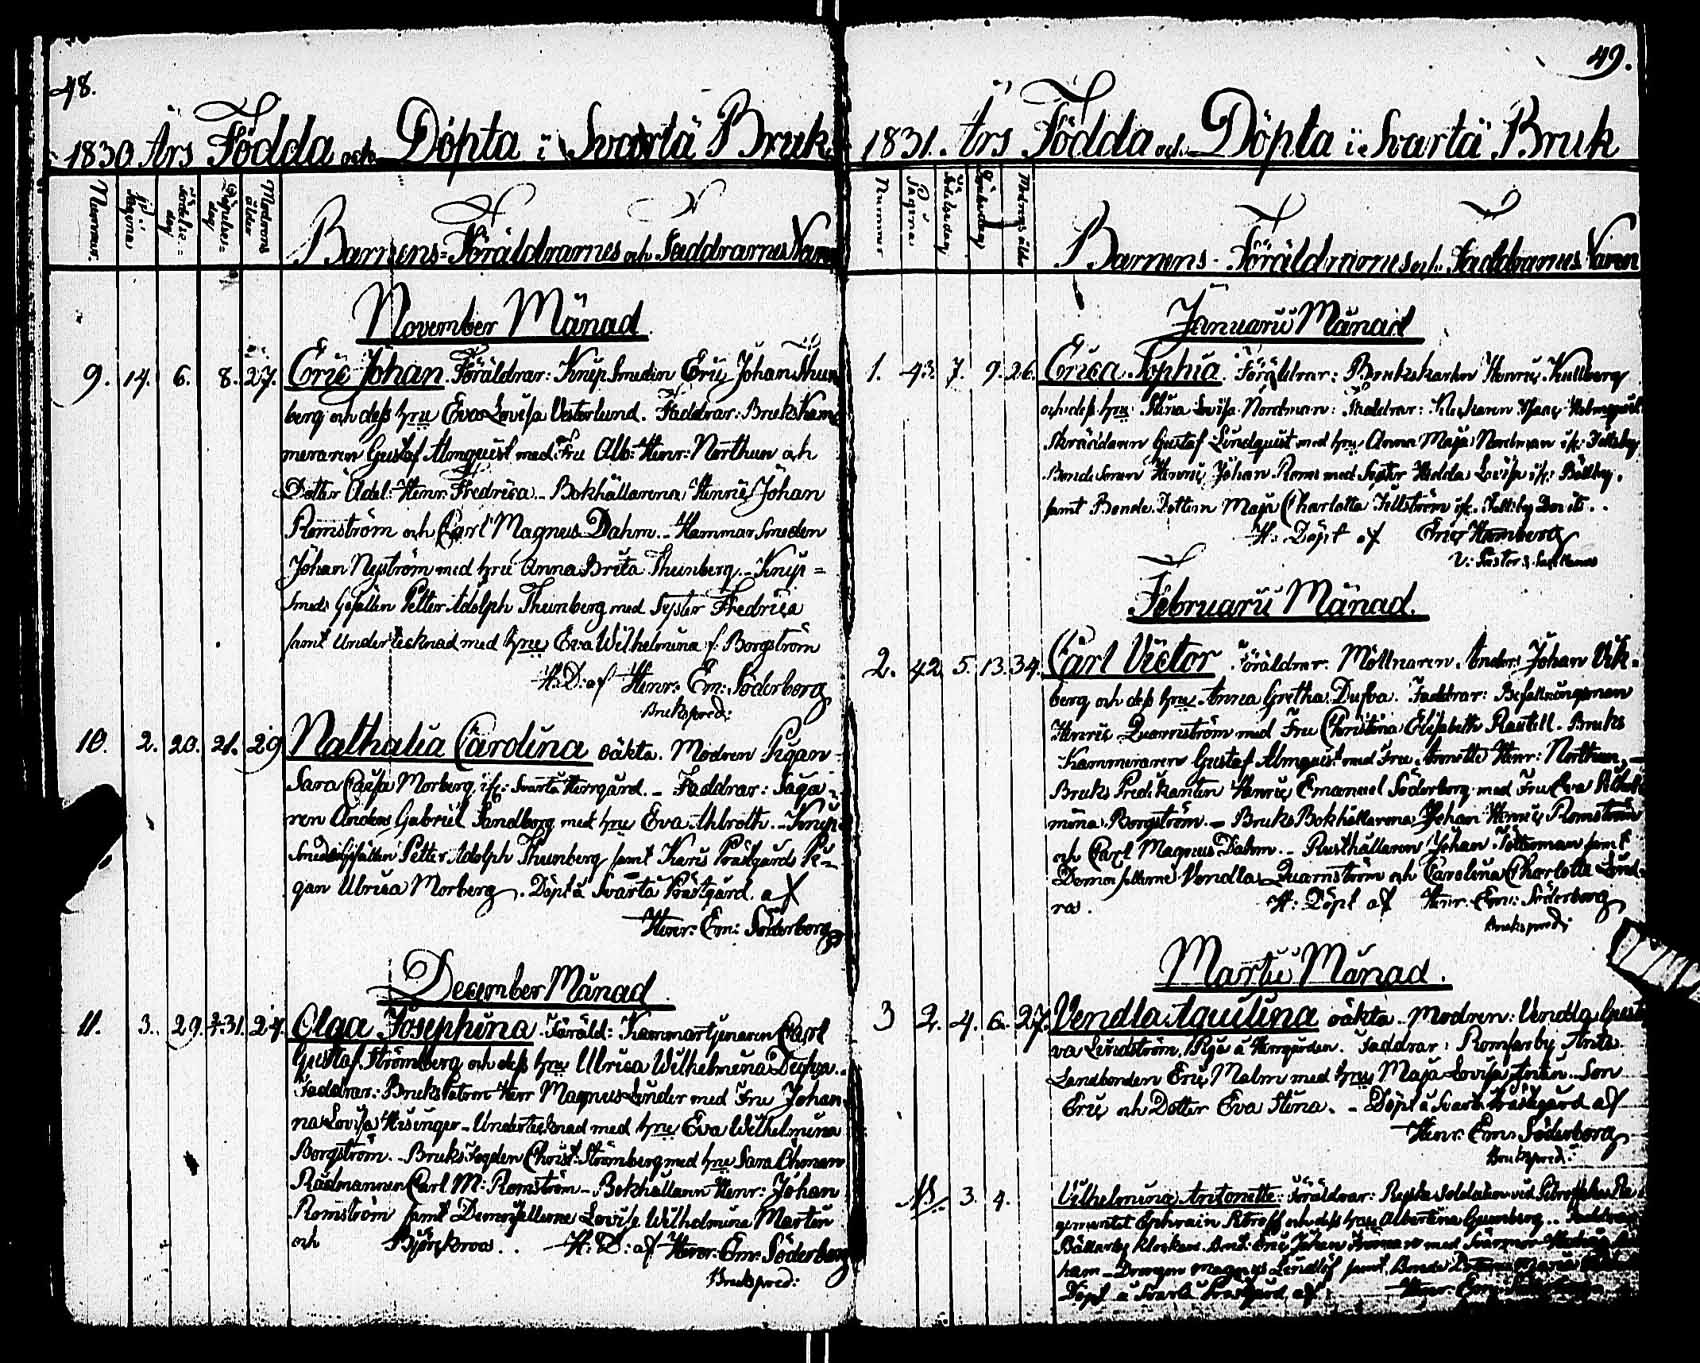 48.
1830 Års Födda och Döpta i Svartå Bruk
Nummer. Pagina Födelse= dag Döpelse= dag Modrens ålder
Barnens= Föräldrarnes och Faddrarnes Namn
November Månad
9. 14. 6. 8. 27. Eric Johan. Föräldrar: Knip Smeden Eric Johan Thun
berg och dess hru Eva Lovisa Vesterlund. Faddrar: Bruks Kam
meraren Gustaf Almquist med Fru Alb: Henr: Northun och
Dotter Adel: Henr: Fredrica - Bokhållarena Henric Johan
Romström och Carl Magnus Dahm. - Hammar Smeden
Johan Nyström med hru Anna Brita Thunberg. - Knip=
smeds Gesällen Petter Adolph Thunberg med Syster Fredrica
samt Undertecknad med hru Eva Wilhelmina f: Borgström
H. D: af Henr: Em: Söderborg
Brukspred:
10. 2. 20. 21. 29 Nathalia Carolina oäkta. Modren Pigan
Sara Cajsa Morberg i fr: Svartå Herrgård. - Faddrar: Såga
ren Anders Gabriel Sandborg med hru Eva Ahlroth. - Knip
Smedsgesällen Petter Adolph Thunberg samt Karis Prästgårds Pi=
gan Ulrica Morberg. Döpt å Svartå Prästgård af
Henr: Em: Söderborg
December Månad
11. 3. 29. 31. 27. Olga Josephina. Föräld: Kammartjenaren Carl
Gustaf Strömberg och dess hru Ulrica Wilhelmina
Faddrar: Brukspatron Herr Magnus Linder med Fru Johan
na Lovisa Hisinger - Undertecknad med hru Eva Wilhelmina
Borgström. - Bruks Fogden Christ: Strömberg med hru Sara Öhman
Rådmannen Carl M: Romström - Bokhållarn Henr: Johan
Romström samt Demoisellerne Lovise Wilhelmina Martin
och Björkroos. - H: D: af Henr: Em: Söderborg
Brukspred:
49.
1831. Års Födda och Döpta i Svartå Bruk
Nummer Pagina Födelsedag Döpelsedag Modrens ålder
Barnens - Föräldrarnes och Faddrarnes Namn
Januarii Månad
1. 43. 7. 9. 26. Erica Sophia. Föräldrar: Brukskarlen Henric Kullberg
och dess hru Stina Lovisa Nordman: Faddrar: Holmquist
Skräddaren Gustaf Lindquist med hru Anna Maja Nordman
Bonde Sonen Henric Johan Roms med Syster Hedda Lovisa
samt Bonde Dottern Maja Charlotta
H: Döpt af Eric Homberg
Februarii Månad.
2. 42. 5. 13. 34. Carl Victor. Föräldrar. Möllnaren Anders Johan Vik=
berg och dess hru Anna Gretha Dufva. Faddrar: Befallningsman
Henric Quarnström med Fru Christina Elisabeth Rautell. Bruks
Kammeraren Gustaf Almquist med Fru Annette Henr: Northun, -
Bruks Predikanten Henric Emanuel Söderborg med Fru Eva Wilhel
mina Borgström - Bruks Bokhållarena Johan Henric Romström
och Carl Magnus Dahm. - Rusthållaren Johan Fetterman samt
Demoisellerne Vendla Quarnström och Carolina Charlotta Lind
ra. H: Döpt af Henr: Em: Söderborg
Brukspred:
Martii Månad.
3 2. 4. 6. 27. Vendla Aquilina oäkta. Modren: Vendla Gusta
va Lindström, Piga å Herrgården. Faddrar: Romsarby Ante
Landbonden Eric Malm med hru Maja Lovisa Son
Eric och Dotter Eva Stina. - Döpt å Svartå Prästgård af
Henr: Em: Söderborg
Brukspred:
NB. 3. 4. Vilhelmina Antonette: Föräldrar: Ryska soldaten vid Petroffska Re
gementet Ephraim och dess hru Albertina Gumberg. Faddrar
Bällarby Klockan Eric Johan med Svärmor
Magnus Lindlöf samt Bonde Dottern Maria
Döpt å Svartå Prästgård af Henr: Em: